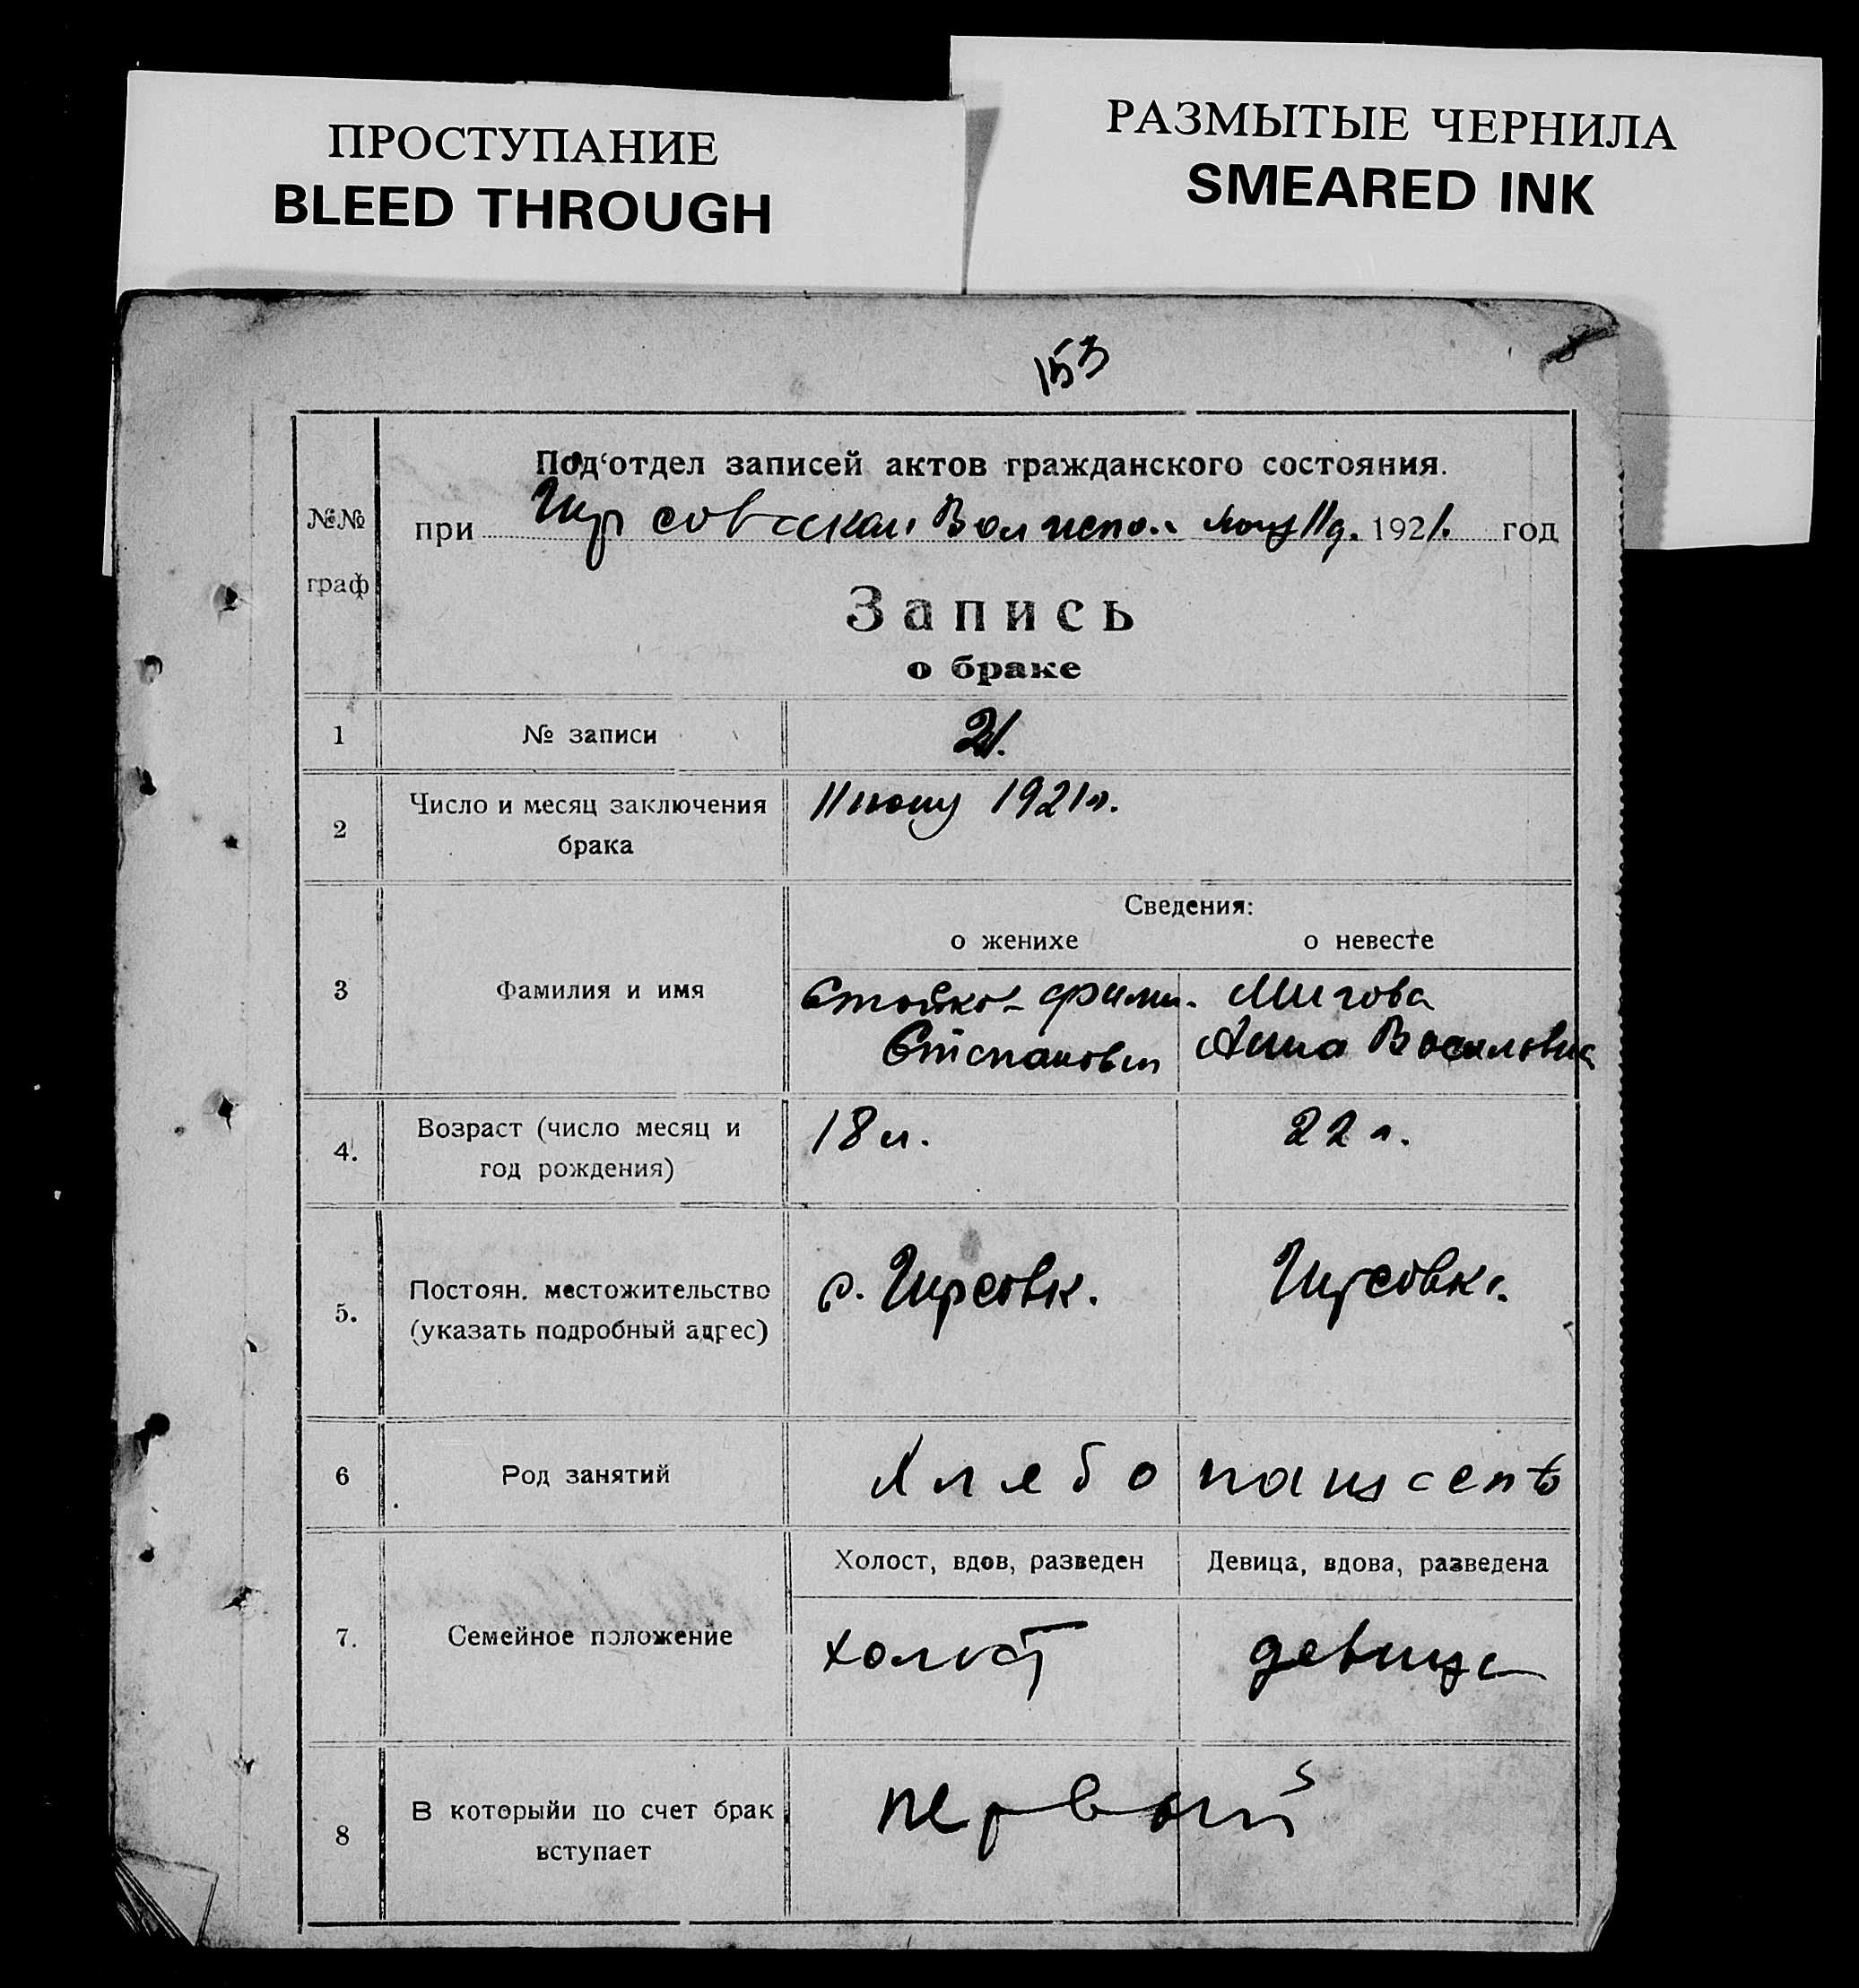 ПРОСТУПАНИЕ
BLEED THROUGH
РАЗМЫТЫЕ ЧЕРНИЛА
SMEARED INK
153
8
Под'отдел записей актов гражданского состояния.
№№ граф
при Волиспол 1921. год
Запись
о браке
1 № записи 21.
2 Число и месяц заключения брака 11 июну 1921 г.
Сведения:
о женихе о невесте
3 Фамилия и имя
Стойко Мигова
Степанович Анна Василовна
4. Возраст (число месяц и год рождения) 18 л. 22 л.
5. Постоян. местожительство (указать подробный адрес)
6 Род занятий Хлебо
7. Семейное положение
Холост, вдов, разведен Девица, вдова, разведена
холост девица
8 В которыйи по счет брак вступает первый